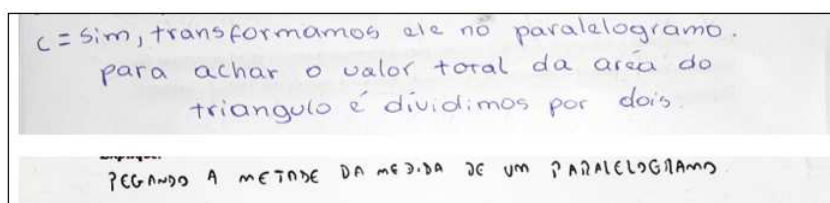 c = Sim, transformamos ele no paralelogramo.
para achar o valor total da area do
triangulo é dividimos por dois.
PEGANDO A METADE DA MEDIDA DE UM PARALELOGRAMO